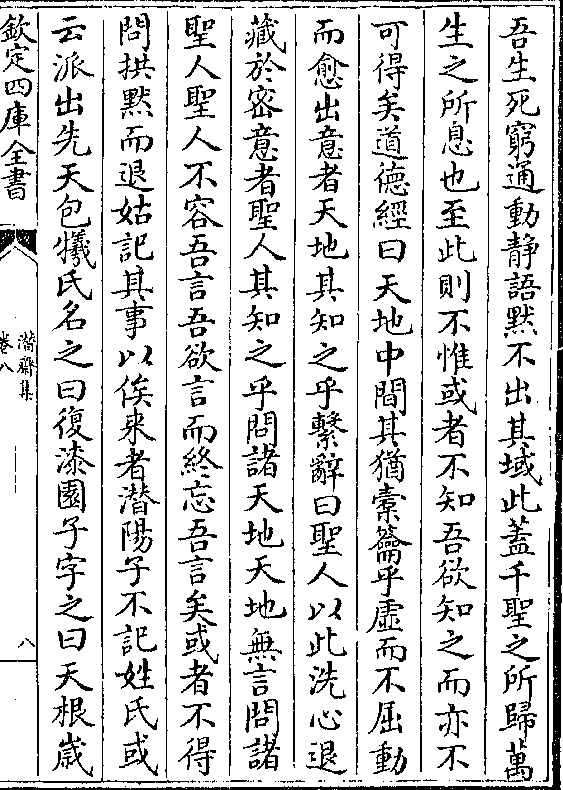 吾生死窮通動静語黙不出其域此蓋千聖之所歸萬
生之所息也至此則不惟或者不知吾欲知之而亦不
可得矣道德經曰天地中間其猶橐籥乎虛而不屈動
而愈出意者天地其知之乎繫辭曰聖人以此洗心退
藏於宻意者聖人其知之乎問諸天地天地無言問諸
聖人聖人不容吾言吾欲言而終忘吾言矣或者不得
問拱黙而退姑記其事以俟来者潜陽子不記姓氏或
云派出先天包犧氏名之曰復漆園子字之曰天根嵗
欽定四庫全書
潜齋集
卷八
八